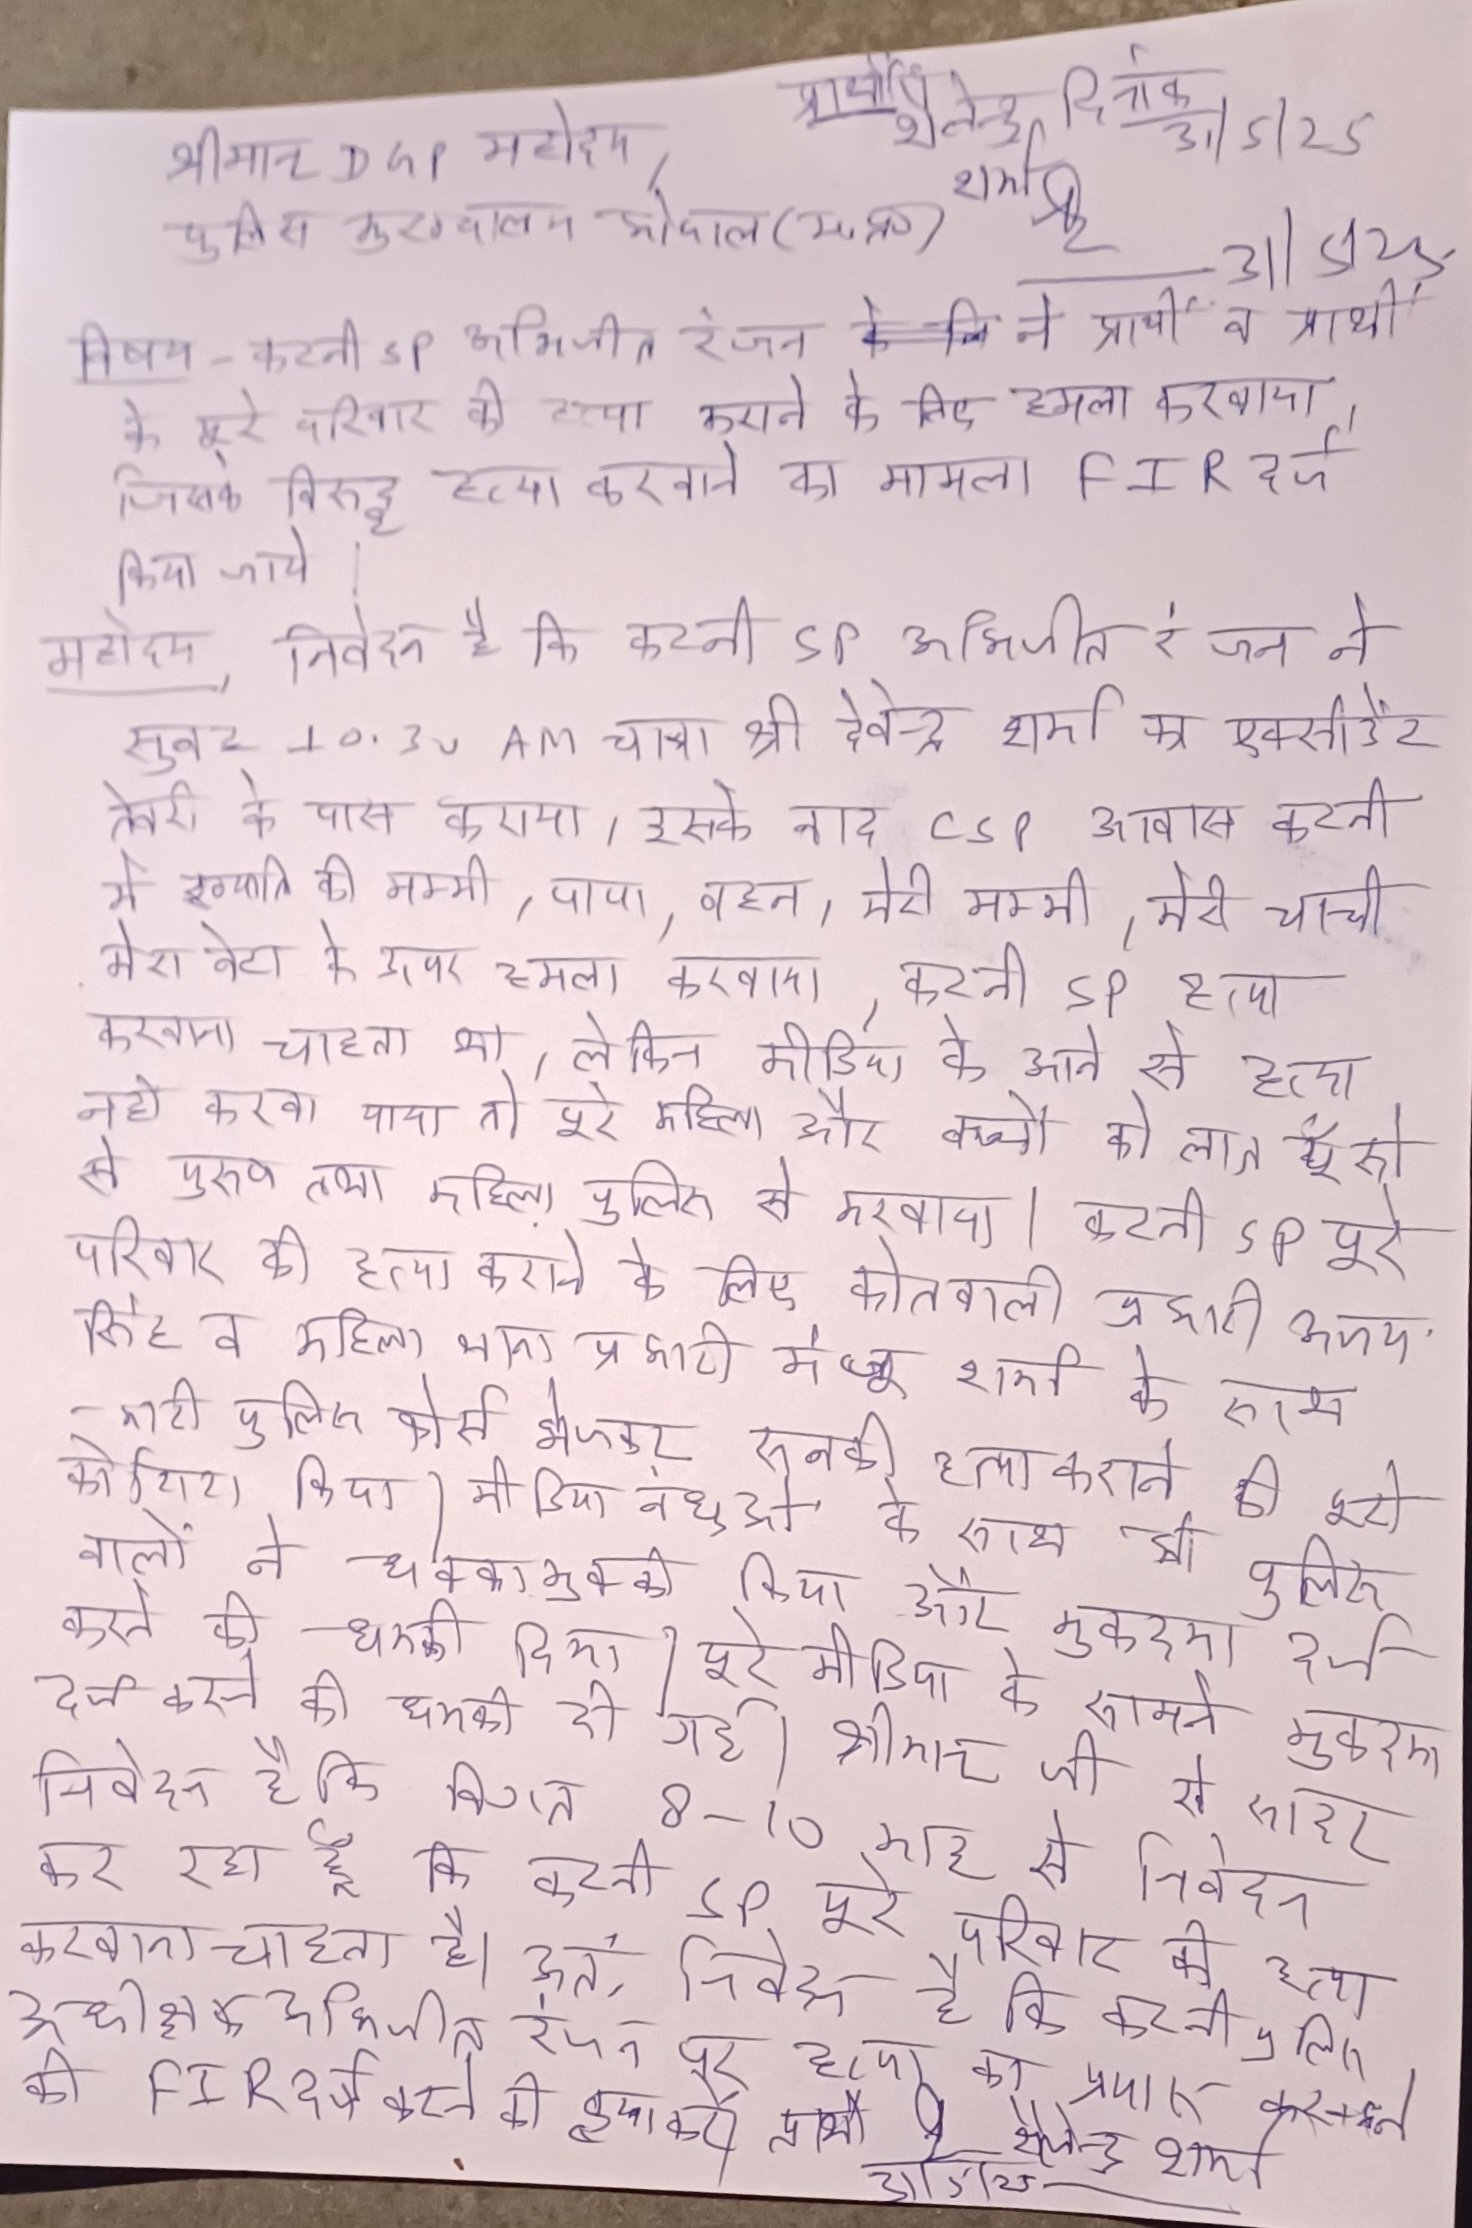 प्रार्थी
शैलेन्द्र
शर्मा
दिनांक
31/5/25
श्रीमान DGP महोदय,
पुलिस मुख्यालय भोपाल (म.प्र.)
31/5/25
विषय - कटनी SP अभिजीत रंजन ने प्रार्थी व प्रार्थी
के पूरे परिवार की हत्या कराने के लिए हमला करवाया,
जिसके विरुद्ध हत्या करवाने का मामला FIR दर्ज
किया जाये।
महोदय, निवेदन है कि कटनी SP अभिजीत रंजन ने
सुबह 10.30 AM चाचा श्री देवेन्द्र शर्मा का एक्सीडेंट
तेवरी के पास कराया, इसके बाद CSP आवास कटनी
में ख्याति की मम्मी, पापा, बहन, मेरी मम्मी, मेरी चाची
मेरा बेटा के ऊपर हमला करवाया, कटनी SP हत्या
करवाना चाहता था, लेकिन मीडिया के आने से हत्या
नही करवा पाया तो पूरे महिला और बच्चों को लात घूसो
से पुरुष तथा महिला पुलिस से मरवाया। कटनी SP पूरे
परिवार की हत्या कराने के लिए कोतवाली प्रभारी अजय
सिंह व महिला थाना प्रभारी मंजू शर्मा के साथ
भारी पुलिस फोर्स भेजकर सबकी हत्या कराने की पूरी
कोशिश किया। मीडिया बंधुओ के साथ भी पुलिस
वालों ने धक्का मुक्की किया और मुकदमा दर्ज
करने की धमकी दिया। पूरे मीडिया के सामने मुकदमा
दर्ज करने की धमकी दी गई। श्रीमान जी से सादर
निवेदन है कि विगत 8-10 माह से निवेदन
कर रहा हूँ कि कटनी SP पूरे परिवार की हत्या
करवाना चाहता है। अतः निवेदन है कि कटनी पुलिस
अधीक्षक अभिजीत रंजन पर हत्या का प्रयास करने
की FIR दर्ज करने की कृपा करें प्रार्थी
शैलेन्द्र शर्मा
31/5/25